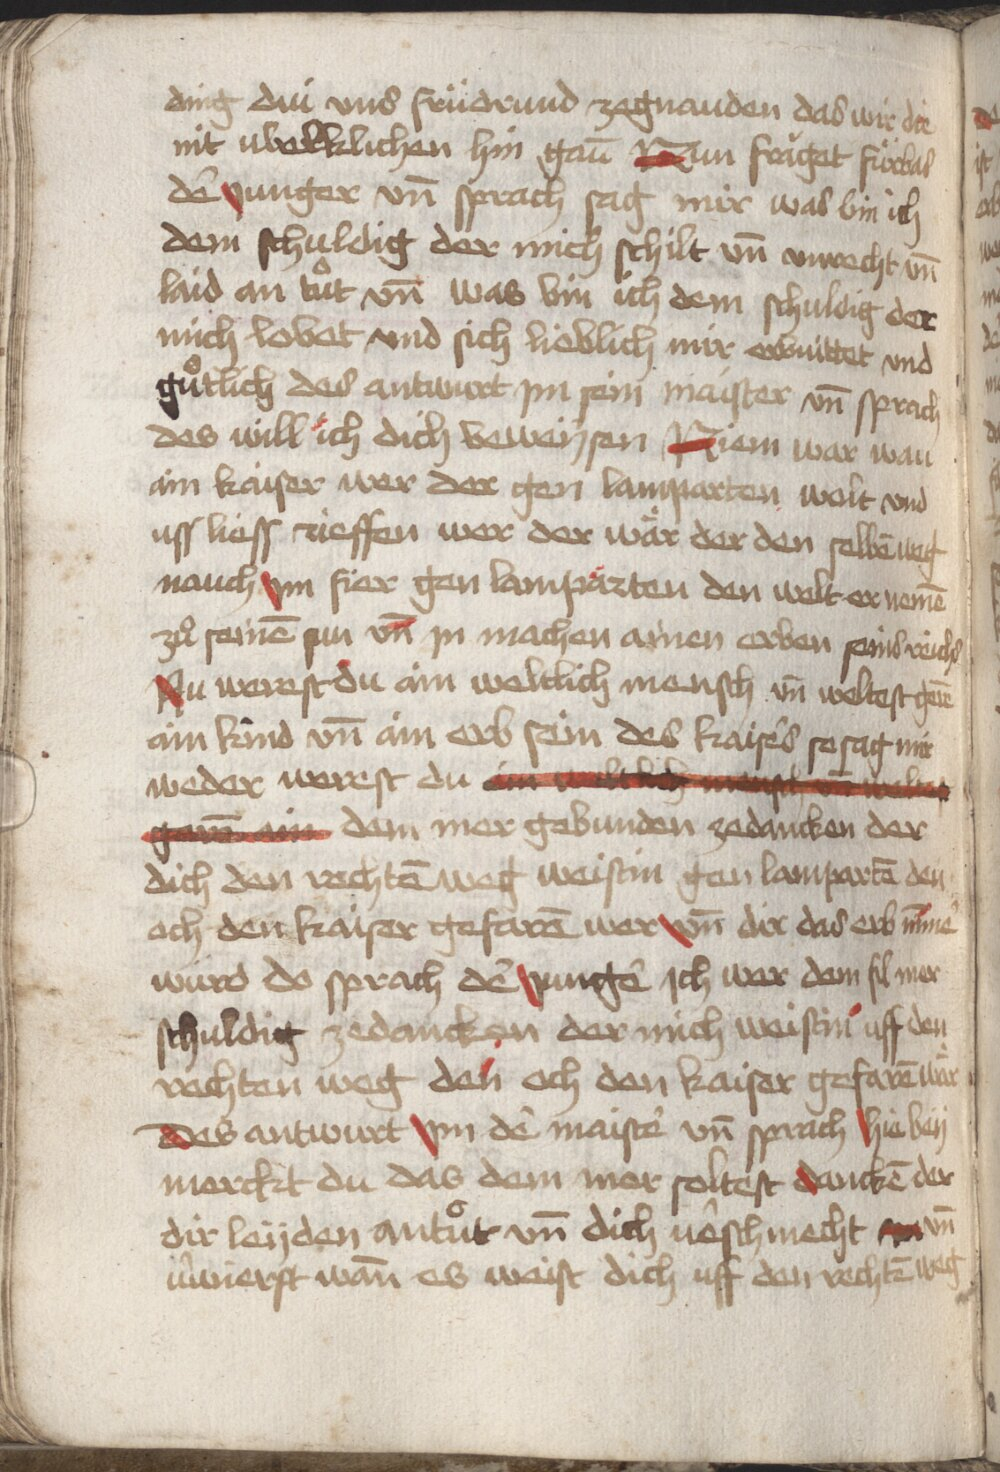 ding die uns früdrund zegnauden das wir die
nit ubellklichen hin gan̄ Nun fräget fürbas
de᷑ junger vn̄ sprach sag mir was bin ich
dem schuldig der mich schilt vn̄ unrecht vn̄
laid an tůt vn̄ was bin ich dem schuldig der
mich lobet und sich lieblich mir erbuittet und
gůtlich des antwurt jm sein maister vn̄ sprach
des will ich dich beweysen Niem war wau
ain kaiser wer der gen lamparten welt und
uss liess rieffen wer der wär der den selbē weg
nauch jm fier gen lamparten den welt er nemē
zů seinē sun vn̄ jn machen ainen erben seins reichs
Nu werest du ain weltlich mensch vn̄ weltest gerē
ain kind vn̄ ain erb sein des kaise᷑s so sag mir
weder werest du ain weltlich mensch vn̄ weltest
gerē ain dem mer gebunden zedancken der
dich den rechtē weg weistin gen lampartē den
och den kaiser gefarē wer vn̄ dir das erb
wurd do sprach de᷑ junge᷑ ich wer dem fil mer
schuldig zedancken der mich weistin uff den
rechten weg den och den kaiser gefarē wär
Des antwurt jm de᷑ maiste᷑ vn̄ sprach hie bey
merckt du das dem mer soltest danckē der
dir leyden antůt vn̄ dich ve᷑schmecht vn̄
wan̄ es weist dich uff den rechtē weg